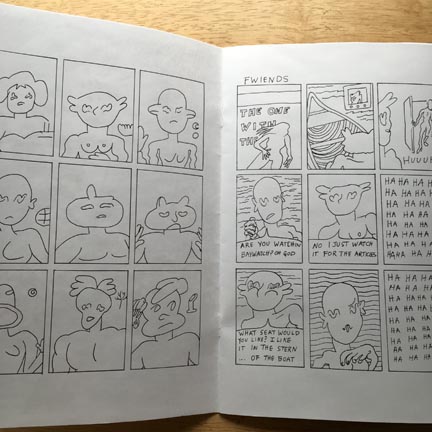 FWIENDS
THE ONE
WITH
THE
HUUUH
ARE YOU WATCHIN
BAYWATCH? OH GOD
NO I JUST WATCH
IT FOR THE ARTICLES
HA HA HA HA
HA HA HA H
HA HA HA H
HA HA HA H
HA HA HA H
HA HA HA H
HA HA HA H
WHAT SEAT WOULD
YOU LIKE? I LIKE
IT IN THE STERN
... OF THE BOAT
HA HA HA H
HA HA HA H
HA HA HA H
HA HA HA
HA HA HA
HA HA HA
HA HA HA H
HA HA HA H